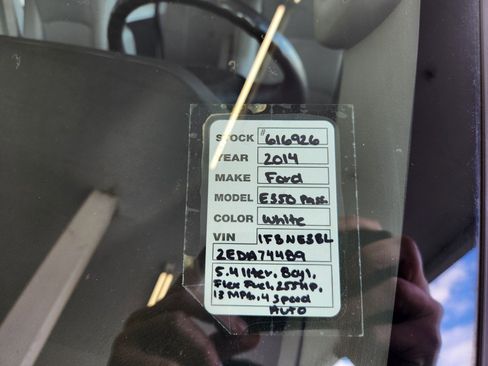 STOCK # 616926
YEAR 2014
MAKE Ford
MODEL E350 Pass.
COLOR White
VIN 1FBNE3BL
2EDA74489
5.4 liter, 8cyl,
Flex Fuel, 255HP,
13 MPG, 4 speed
Auto